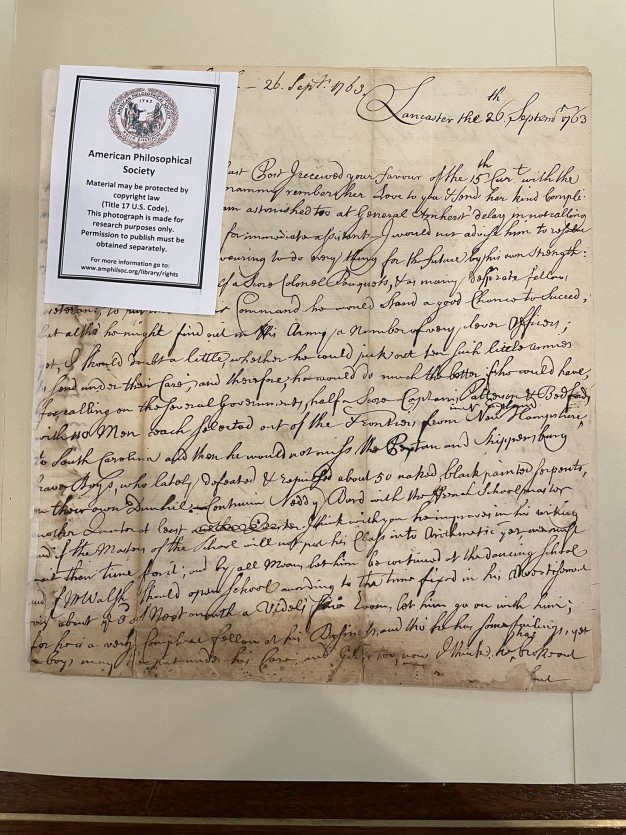 - 26. Sept. 1763.
Lancaster the 26th Septemr 1763
AMERICAN PHILOSOPHICAL SOCIETY
1743
American Philosophical
Society
Material may be protected by
copyright law
(Title 17 U.S. Code).
This photograph is made for
research purposes only.
Permission to publish must be
obtained separately.
For more information go to:
www.amphilsoc.org/library/rights
last Post I received your favour of the 15th Curt. with the
mammy remember her Love to you & send her kind Comple
am astonished too at General Amherst delay in not calling
for immediate assistants I would not advise him to
to do every thing for the future by his own Strength:
a Score Colonel Bouquets, & as many desperate fellow,
Command he would stand a good Chance to Succeed,
but altho' he might find out in this Army a Number of very clever Officers;
I should doubt a little, whether he could pick out ten such little armies
send under their Care, and therefore, he would do much the better who could have,
for calling on the several Governments, half a Score Captains Patterson & Bedfords
with 110 Men each selected out of the Frontiers from New Hampshire
in N. England
to South Carolina and then he would not miss the Paxton and Shippensburg
brave Boys, who lately defeated & about 50 naked, black painted Serpents,
on their own Dunhil. Continue Neddy Burd with the French Schoolmaster
another Quarter at least I think with you he improves in his writing
and if the Masters of the School will not put his Class into Arithmetic yet, we must
wait their time for it; and by all Means let him be continued at the dancing School
and if Mr Walsh should open School according to the time fixed in his Advertisement
about ye 3d of Next month a let him go on with him;
for he is a very Compleat fellow at his Business, and tho he has some failings, yet
a boys may be put under his Care, and too, now I think, he has broke out
but